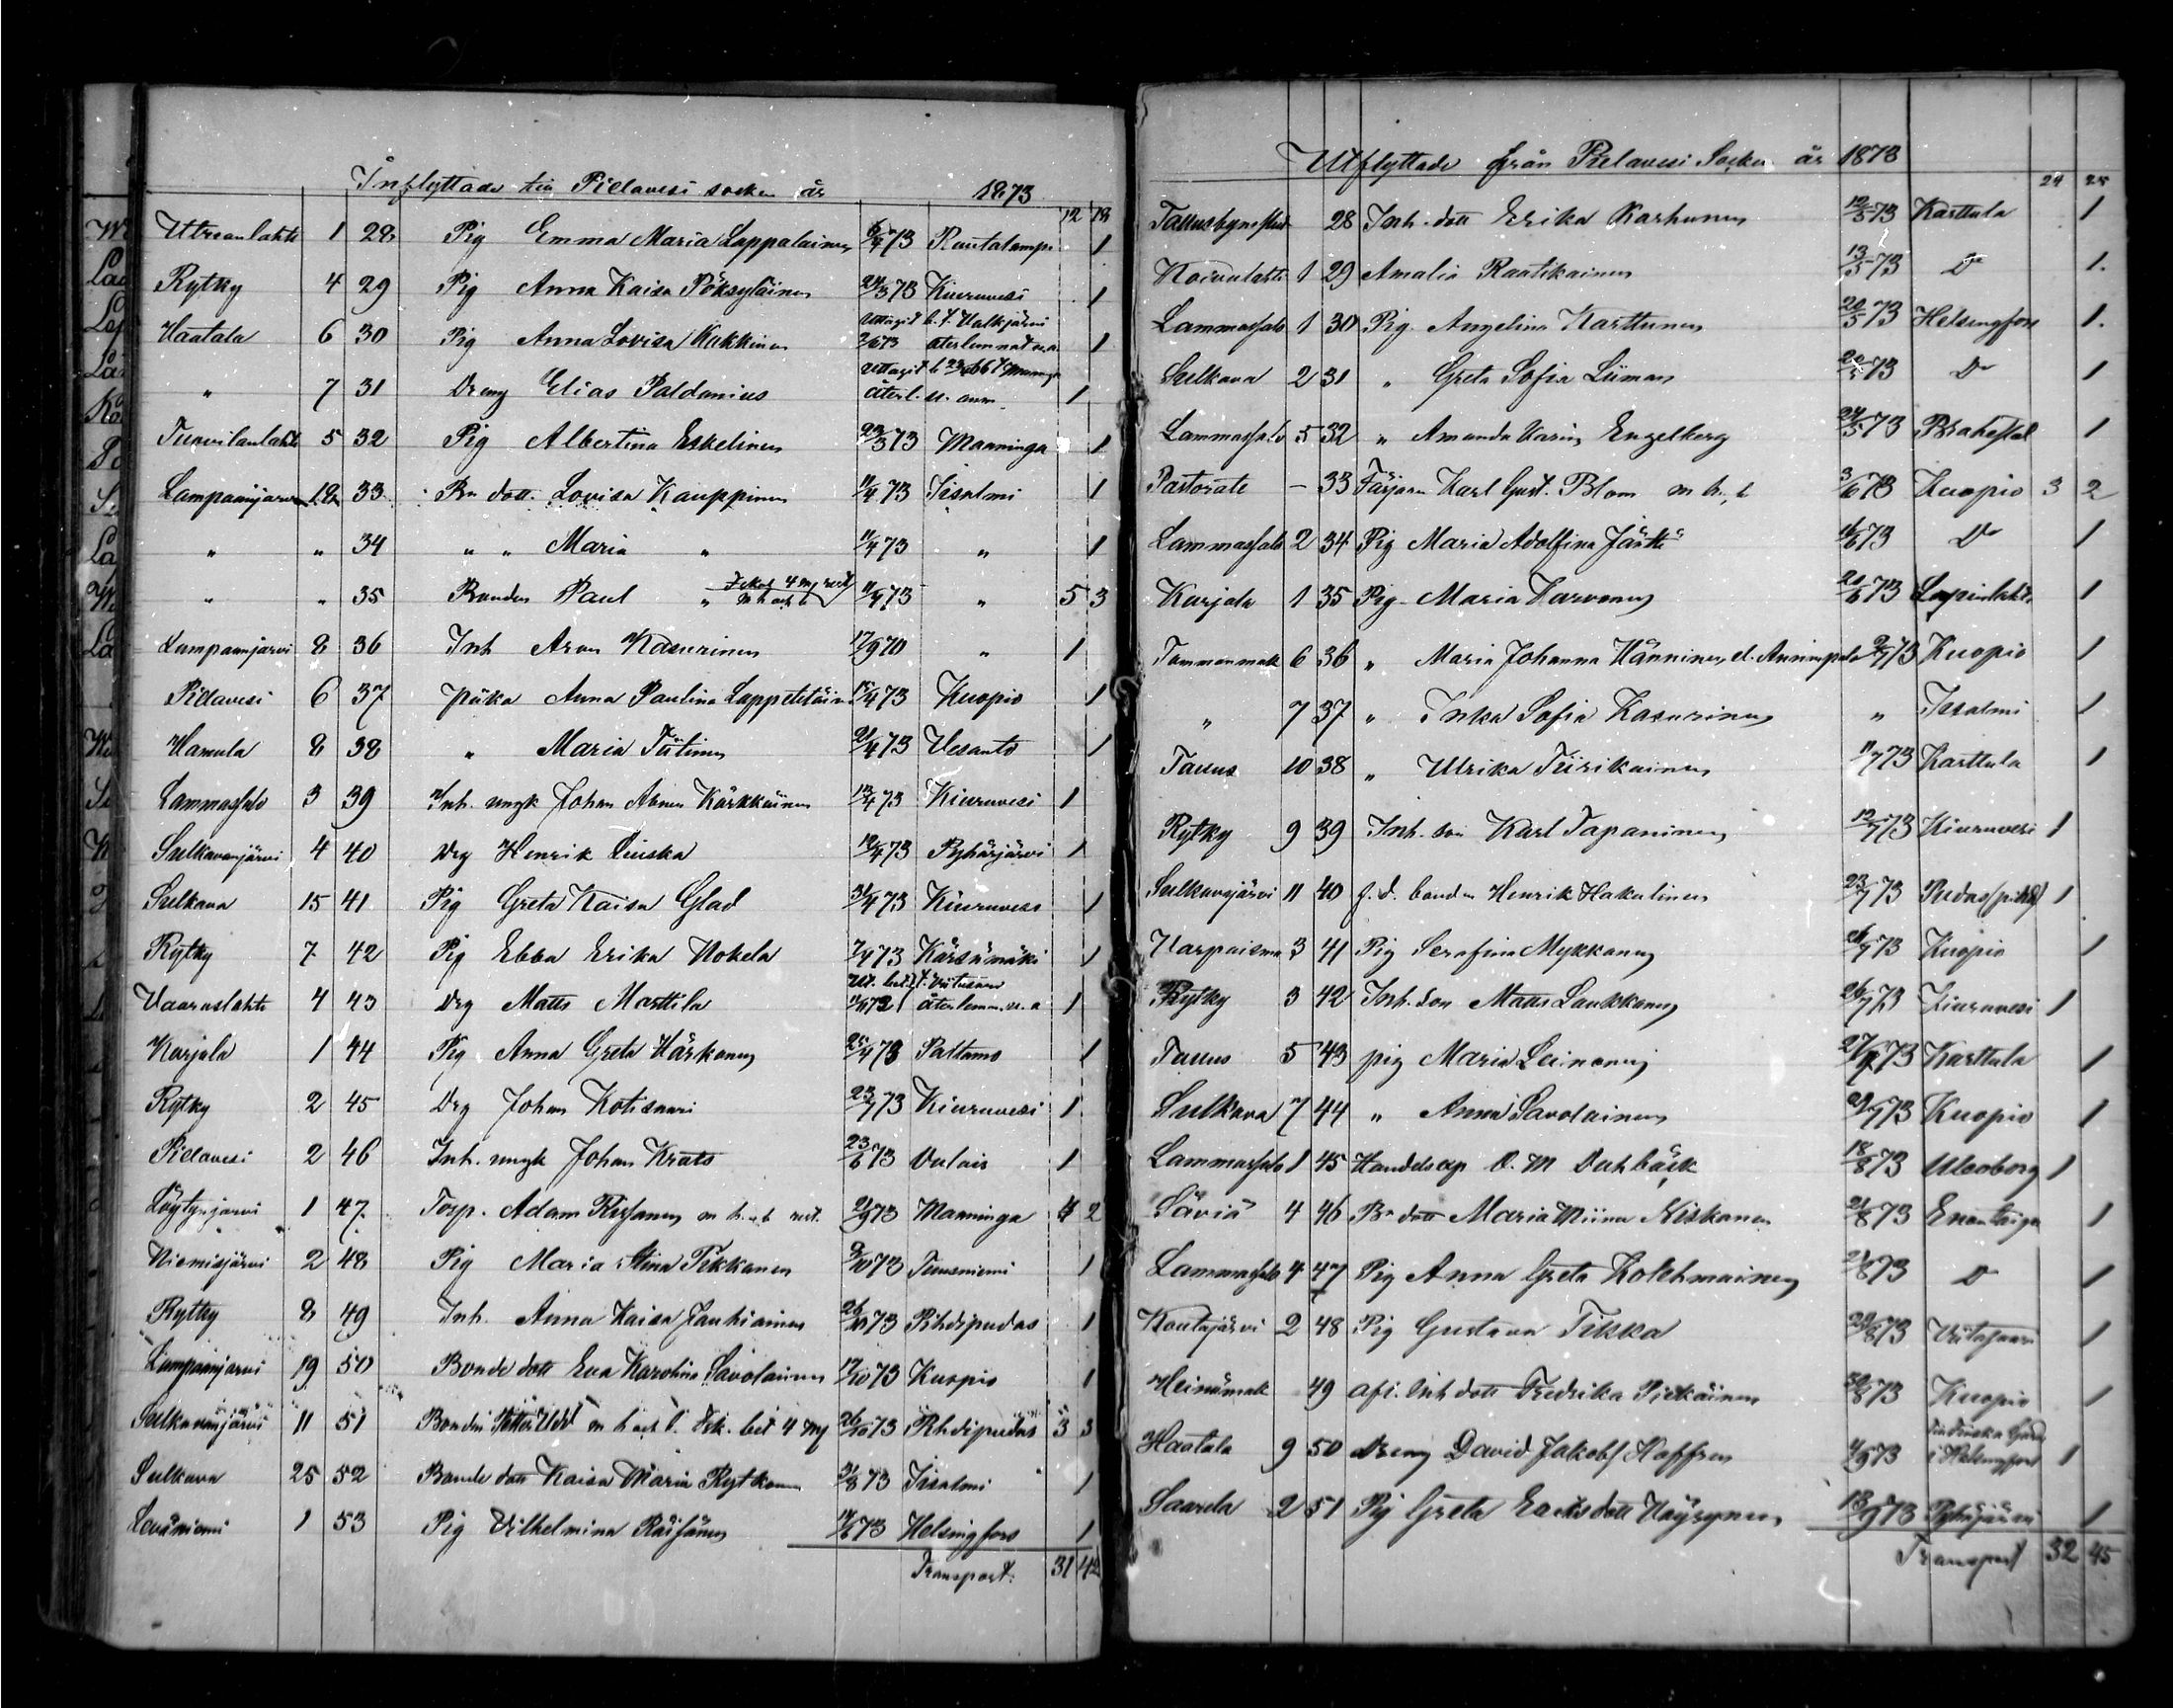 Inflyttade till Pielavesi socken år 1873
12 18
Utrianlahti 1 28 Pig Emma Maria Lappalainen 6/4 73 Rautalampi 1
Rytky 4 29 Pig Anna Kaisa Pöksyläinen 24/3 73 Kiuruvesi 1
Haatala 6 30 Pig Anna Lovisa Kukkinen uttagit b. t. Walkjärvi återlemnat u.a. 1
" 7 31 Dreng Elias Paldanius återl. u. anm. 1
Tuovilanlahti 5 32 Pig Albertina Eskelinen 23/3 73 Maaninga 1
Lampaanjärvi 12 33 Bn dott. Lovisa Kauppinen 11/4 73 Iisalmi 1
" " 34 " " Maria " 11/4 73 " 1
" " 35 Bonden Paul " m h och b 11/4 73 " 5 3
Lampaanjärvi 8 36 Inh Aron Kasurinen 17/9 70 " 1
Pielavesi 6 37 piika Anna Paulina Lappeteläin. 15/4 73 Kuopio 1
Hamula 8 38 " Maria Tiitinen 21/4 73 Vesanto 1
Lammassalo 3 39 Inh. ungk Johan Abner Kärkkäinen 13/4 73 Kiuruvesi 1
Sulkavanjärvi 4 40 Drg Henrik Liuska 12/4 73 Pyhäjärvi 1
Sulkava 15 41 Pig Greta Kaisa Glad 31/4 73 Kiuruvesi 1
Rytky 7 42 Pig Ebba Erika Hokela 7/4 73 Kärsämäki 1
Vaaraslahti 4 43 Drg Matts Marttila återlemn. u. a 1
Karjala 1 44 Pig Anna Greta Härkönen 25/4 73 Paltamo 1
Rytky 2 45 Drg Johan Kotisaari 23/7 73 Kiuruvesi 1
Pielavesi 2 46 Inh. ungk Johan Krats 23/6 73 Walais 1
Löytynjärvi 1 47 Torp. Adam Rissanen m h. o b 2/9 73 Maaninga 4 2
Niemisjärvi 2 48 Pig Maria Stina Pekkanen 9/10 73 Tuusniemi 1
Rytky 8 49 Inh. Anna Kaisa Jauhiainen 26/10 73 Pihdipudas 1
Lampaanjärvi 19 50 Bonde dott Eva Karolina Savolainen 17/10 73 Kuopio 1
Sulkavanjärvi 11 51 Bonden Petter m h och b. 4 mg 26/10 73 Pihdipudas 3 3
Sulkava 25 52 Bonde dott Kaisa Maria Rytkönen 31/8 73 Iisalmi 1
Leväniemi 1 53 Pig Vilhelmina Räisänen 14/6 73 Helsingfors 1
Transport. 31 42
Utflyttade från Pielavesi Socken år 1873
24 25
28 Inh. dott Erika Karhunen 12/5 73 Karttula 1
Koivulahti 1 29 Amalia Raatikainen 13/5 73 Do 1.
Lammassalo 1 30 Pig Angelina Karttunen 20/5 73 Helsingfors 1.
Sulkava 2 31 " Greta Sofia Liiman 20/5 73 Do 1
Lammassalo 5 32 " Amanda Karin Engelberg 24/5 73 Brahestad 1
Pastorate – 33 Färjern Karl Gust. Blom m h. b 3/6 73 Kuopio 3 2
Lammassalo 2 34 Pig Maria Adolfina Jäntti 16/6 73 Do 1
Karjala 1 35 Pig Maria Karvonen 20/6 73 Lapinlahti 1
Tommonmäk 6 36 " Maria Johanna Hänninen 2/7 73 Kuopio 1
" 7 37 " Inka Sofia Kasurinen " Iisalmi 1
Taxus 10 38 " Ulrika Tiirikainen 11/7 73 Karttula 1
Rytky 9 39 Inh. son Karl Tapaninen 12/7 73 Kiuruvesi 1
Sulkavajärvi 11 40 f. d. bonden Henrik Hakulinen 23/7 73 Pudas (pihdi) 1
Varpaisma 3 41 Pig Serafina Mykkänen 26/7 73 Kuopio 1
Rytky 3 42 Inh. son Matts Laukkanen 26/7 73 Kiuruvesi 1
Taxus 5 43 pig Maria Leinonen 27/7 73 Karttula 1
Sulkava 7 44 " Anna Savolainen 29/7 73 Kuopio 1
Lammassalo 1 45 Handelsexp O. M Dahlbäck 18/8 73 Uleoborg 1
Säviä 4 46 Bn dott Maria Miina Kiskonen 21/8 73 1
Lammassalo 4 47 Pig Anna Greta Kolehmainen 21/8 73 Do 1
Koutajärvi 2 48 Pig Gustava Tikka 29/8 73 Viitasaari 1
Heinämäk 49 afl. Inh dott Fredrika Pietkäinen 30/8 73 Kuopio 1
Haatala 9 50 Dreng David Jakobss Hoffren 4/9 73 i Helsingfors 1
Saarela 2 51 Pig Greta Eriksdott Häyrynen 13/9 73 Pyhäjärvi 1
Transport 32 45